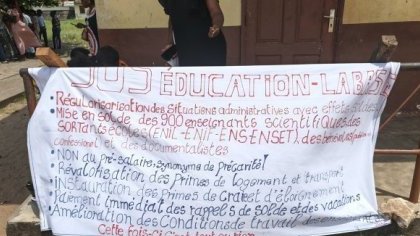 SOS ÉDUCATION-LABASE
• Régularisation des Situations administratives avec effets
• Mise en solde des 900 enseignants scientifiques des
SORTANTS écoles (ENIL-ENIF-ENS-ENSET), des
confessionnel et des documentalistes
• NON au pré-salaire, synonyme de Précarité!
• Révalorisation des Primes de logement et transport
• instauration des Primes de Craie et d'éloignement
• Paiement immédiat des rappels de solde et des vacations
• Amélioration des Conditions de travail des
Cette fois-ci